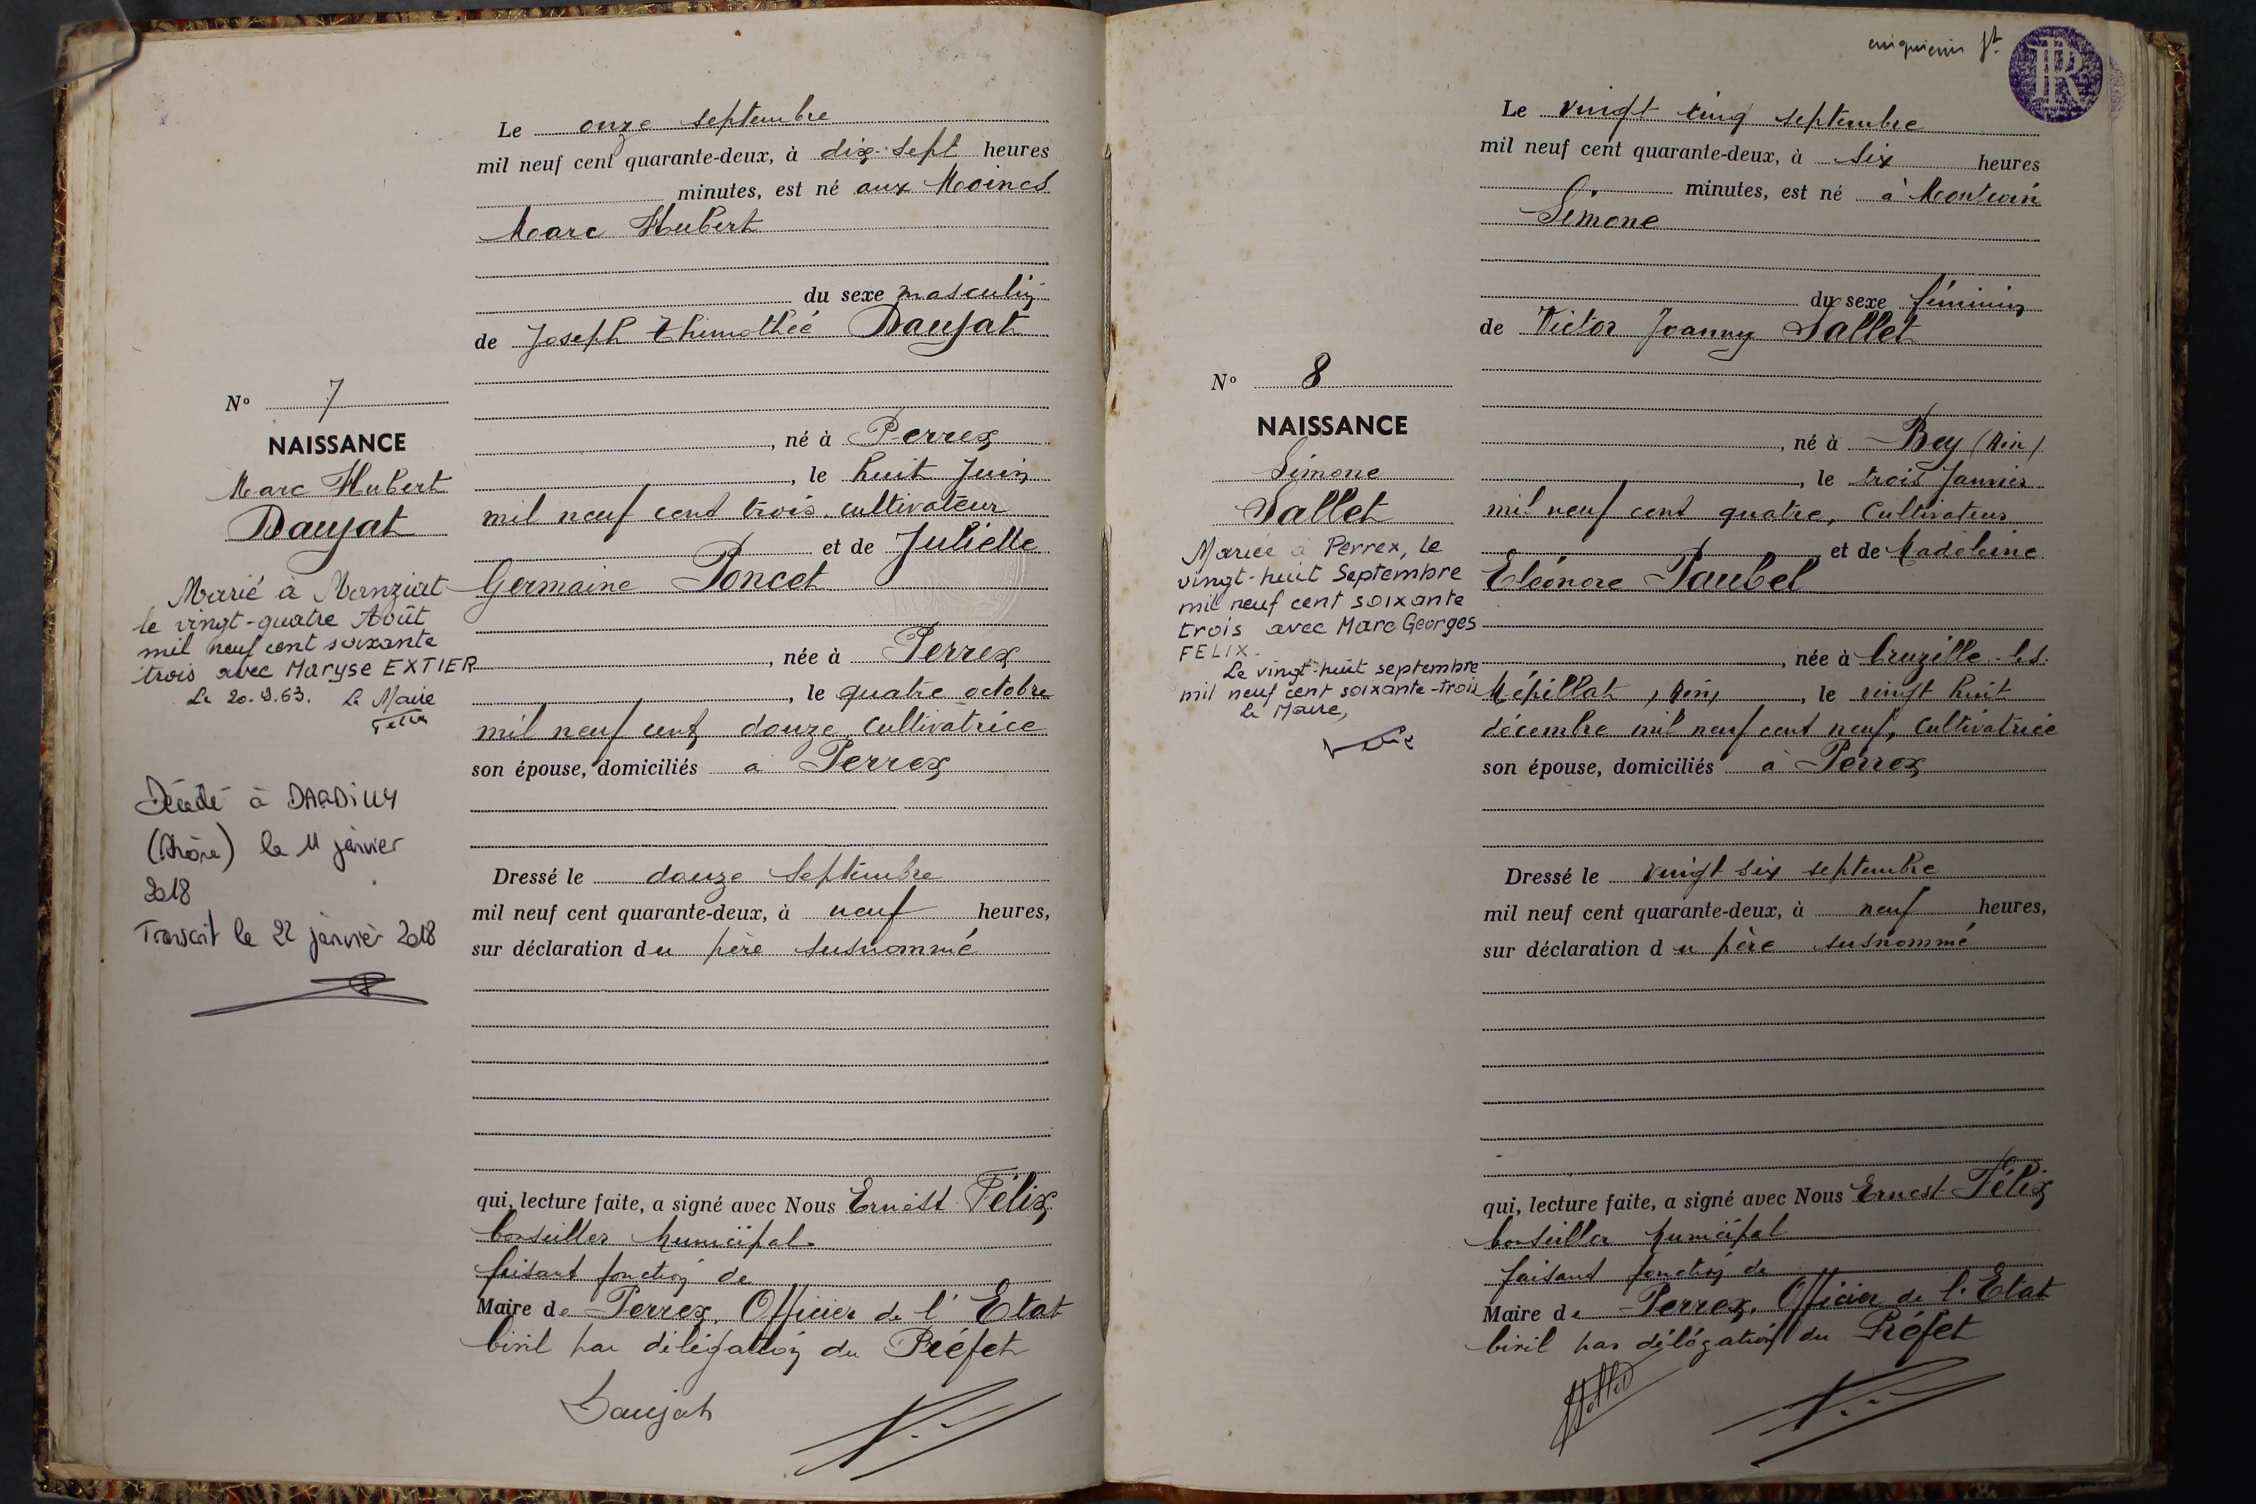 Le onze septembre
mil neuf cent quarante-deux, à dix-sept heures
minutes, est né aux Moines
Marc Hubert
du sexe masculin
de Joseph Thimothée Daujat
N° 7
NAISSANCE
Marc Hubert
Daujat
Marié à Manziat
le vingt-quatre Août
mil neuf cent soixante
trois avec Maryse EXTIER
Le 20.9.63. Le Maire
Félix
Décédé à DARDILLY
(Rhône) le 11 janvier
2018
Transcrit le 22 janvier 2018
, né à Perrex
, le huit Juin
mil neuf cent trois, cultivateur
et de Juliette
Germaine Poncet
, née à Perrex
, le quatre octobre
mil neuf cent douze, cultivatrice
son épouse, domiciliés à Perrex
Dressé le douze septembre
mil neuf cent quarante-deux, à neuf heures,
sur déclaration du père susnommé
qui, lecture faite, a signé avec Nous Ernest Félix
Conseiller Municipal
faisant fonction de
Maire de Perrex, Officier de l'Etat
Civil par délégation du Préfet
Daujat
RF
Le vingt cinq septembre
mil neuf cent quarante-deux, à six heures
minutes, est né à Montcoin
Simone
du sexe féminin
de Victor Joanny Sallet
N° 8
NAISSANCE
Simone
Sallet
Mariée à Perrex, le
vingt-huit Septembre
mil neuf cent soixante
trois avec Marc Georges
FELIX.
Le vingt-huit septembre
mil neuf cent soixante-trois
Le Maire,
, né à Bey (Ain)
, le trois Janvier
mil neuf cent quatre, Cultivateur
et de Madeleine
Eléonore Paubel
, née à Cruzille-les
Mépillat, Ain, le vingt huit
décembre mil neuf cent neuf, Cultivatrice
son épouse, domiciliés à Perrex
Dressé le vingt six septembre
mil neuf cent quarante-deux, à neuf heures,
sur déclaration du père susnommé
qui, lecture faite, a signé avec Nous Ernest Félix
Conseiller Municipal
faisant fonction de
Maire de Perrex, Officier de l'Etat
Civil par délégation du Préfet